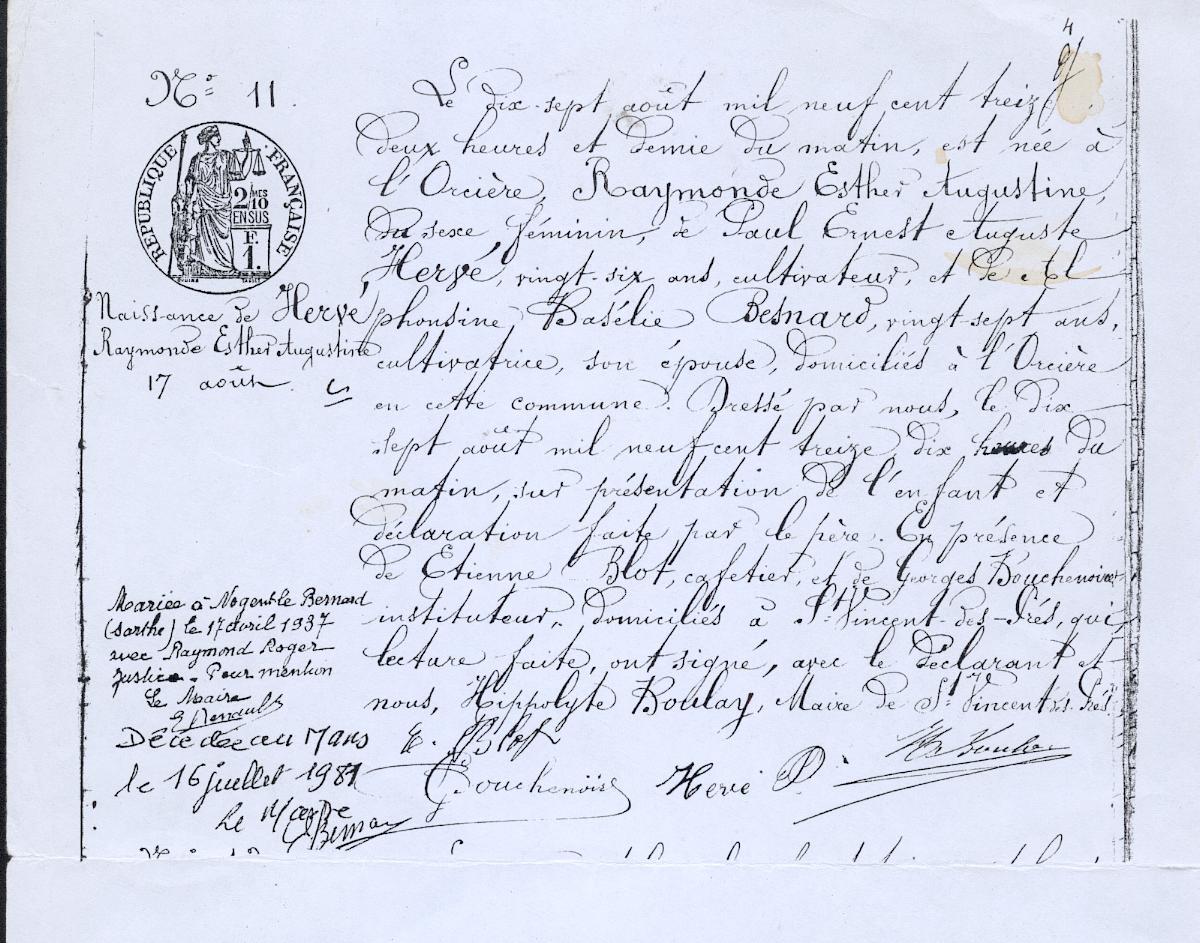 4
Nº 11.
RÉPUBLIQUE FRANÇAISE
2/10 MES
EN SUS
F.
1.
Naissance de Hervé
Raymonde Esther Augustine
17 août.
Le dix-sept août mil neuf cent treize
deux heures et demie du matin, est née à
l'Orcière, Raymonde Esther Augustine,
du sexe féminin, de Paul Ernest Auguste
Hervé, vingt-six ans, cultivateur, et de Al
phonsine Basélie Besnard, vingt-sept ans,
cultivatrice, son épouse, domiciliés à l'Orcière
en cette commune. Dressé par nous, le dix
sept août mil neuf cent treize, dix heures du
matin, sur présentation de l'enfant et
déclaration faite par le père. En présence
de Etienne Blot, cafetier, et de Georges Bouchenoire
instituteur, domiciliés à St Vincent-des-Prés, qui,
lecture faite, ont signé, avec le déclarant et
nous, Hippolyte Boulay, Maire de St Vincent des Prés.
E. Blot
G Bouchenoire
Hervé P.
Mariée à Nogent-le Bernard
(Sarthe) le 17 avril 1937
avec Raymond Roger
Justice. Pour mention
Le Maire
E Renault
Décédée au Mans
le 16 juillet 1981
Le Maire